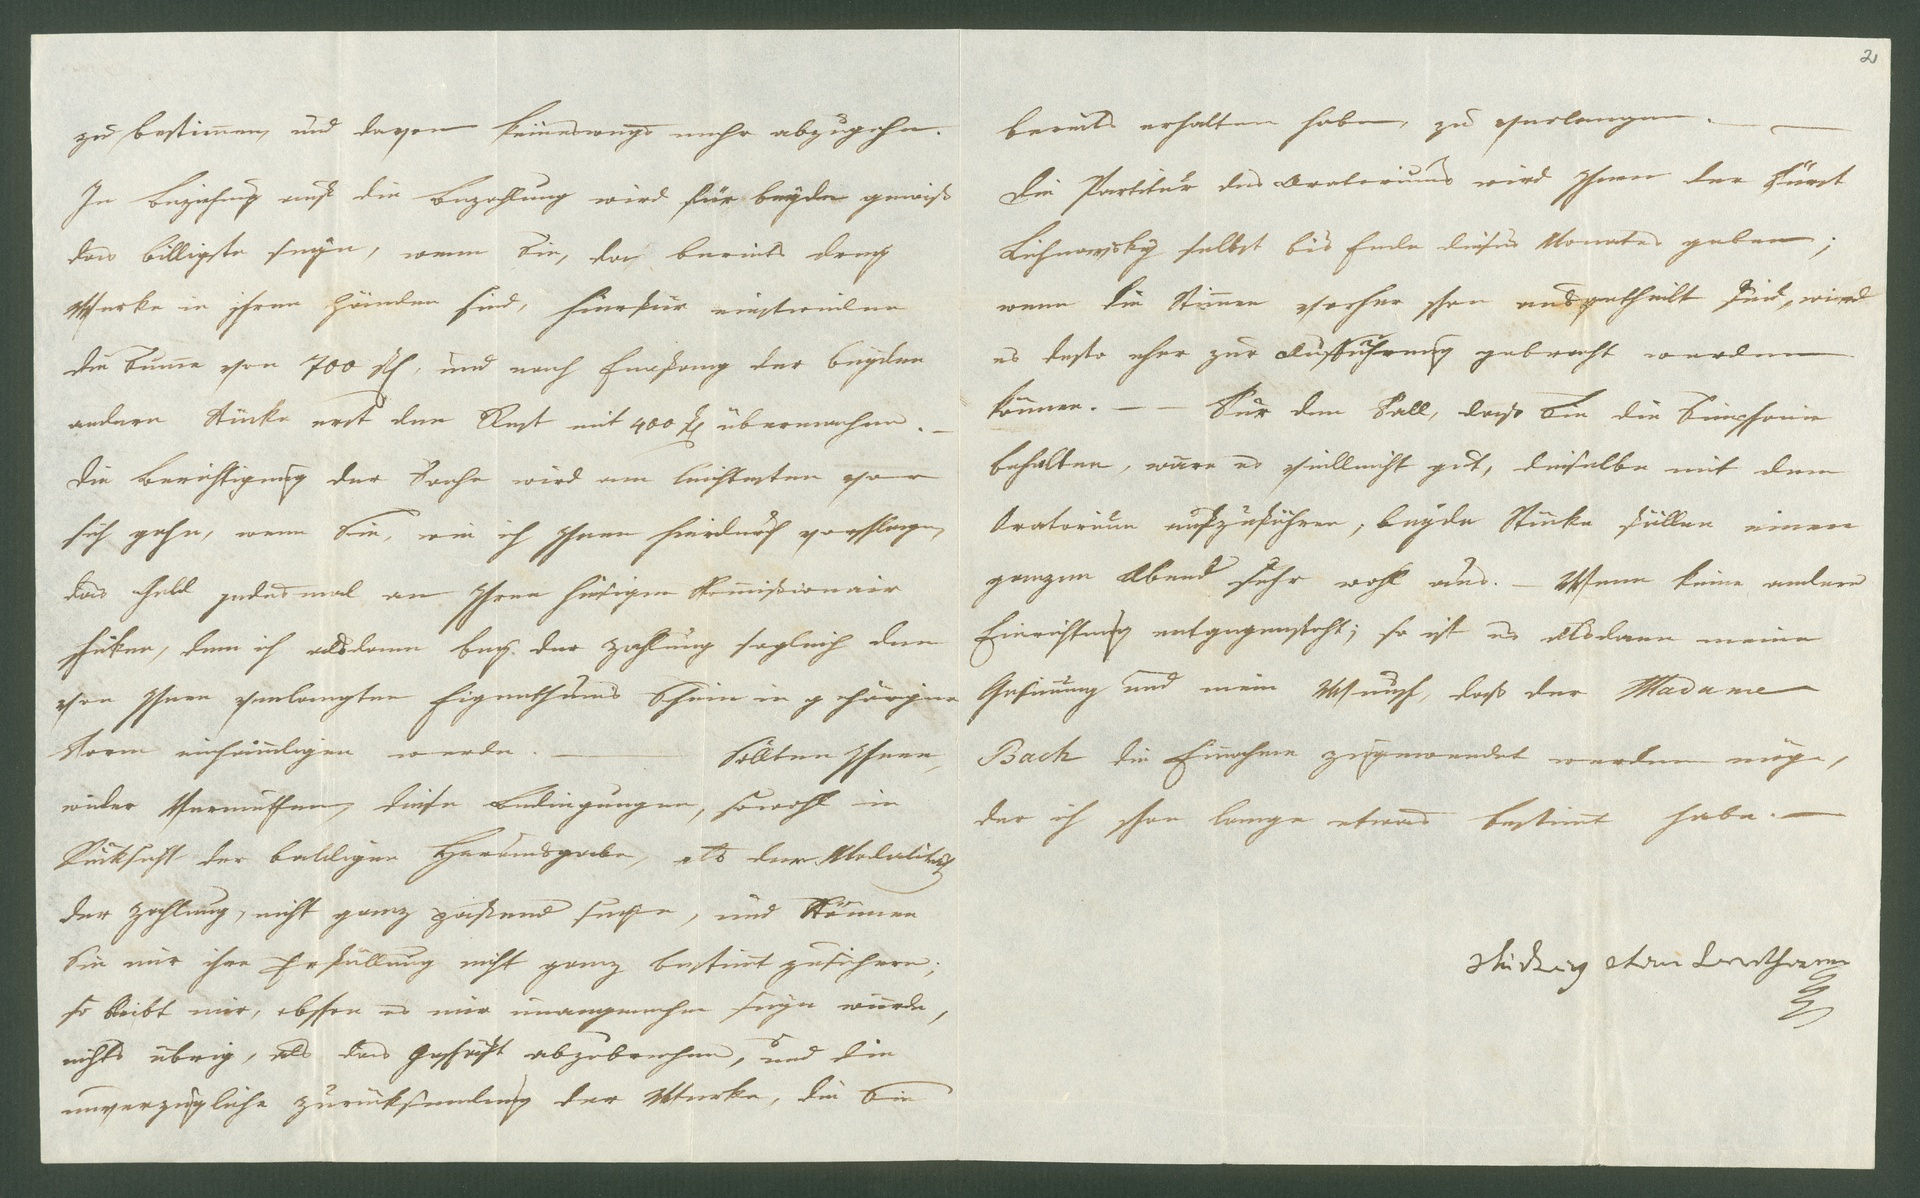 zu bestimmen, und davon keineswegs mehr abzugehn.
In Beziehung auf die Bezahlung wird für beyde gewiß
das billigste seyn, wenn Sie, da bereits drey
Werke in ihren Händen sind, hierfür einstweilen
die Summe von 700 fl, und nach Empfang der beyden
andern Stücke erst den Rest mit 400 fl übermachen. —
Die Berichtigung der Sache wird am leichtesten vor
sich gehn, wenn Sie, wie ich Ihnen hierdurch vorschlage,
das Geld jedesmal an Ihren hiesigen Kommissionair
schicken, dem ich alsdann bey der Zahlung sogleich den
von Ihnen verlangten Eigenthums Schein in gehöriger
Form einhändigen werde. — Sollten Ihnen,
wider Vermuthen, diese Bedingungen, sowohl in
Rücksicht der baldigen Herausgabe, als der Modalität
der Zahlung, nicht ganz passend seyn, und können
Sie mir ihre Erfüllung nicht ganz bestimt zusichern;
so bleibt mir, obschon es mir unangenehm seyn würde,
nichts übrig, als das Geschäft abzubrechen, und die
unverzügliche Zurücksendung der Werke, die Sie
2
bereits erhalten haben, zu verlangen. —
Die Partitur des Oratoriums wird Ihnen der Fürst
Lichnowsky selbst bis Ende dieses Monates geben;
wenn die Stimmen vorher schon ausgetheilt sind, wird
es desto eher zur Aufführung gebracht werden
können. — — Für den Fall, daß Sie die Simphonie
behalten, wäre es vielleicht gut, dieselbe mit dem
Oratorium aufzuführen; beyde Stücke füllen einen
ganzen Abend sehr wohl aus. — Wenn keine andere
Einrichtung entgegensteht; so ist es alsdann meine
Gesinnung und mein Wunsch, daß der Madame
Bach die Einnahme zugewendet werden möge,
der ich schon lange etwas bestimt habe. —
Ludwig van Beethoven